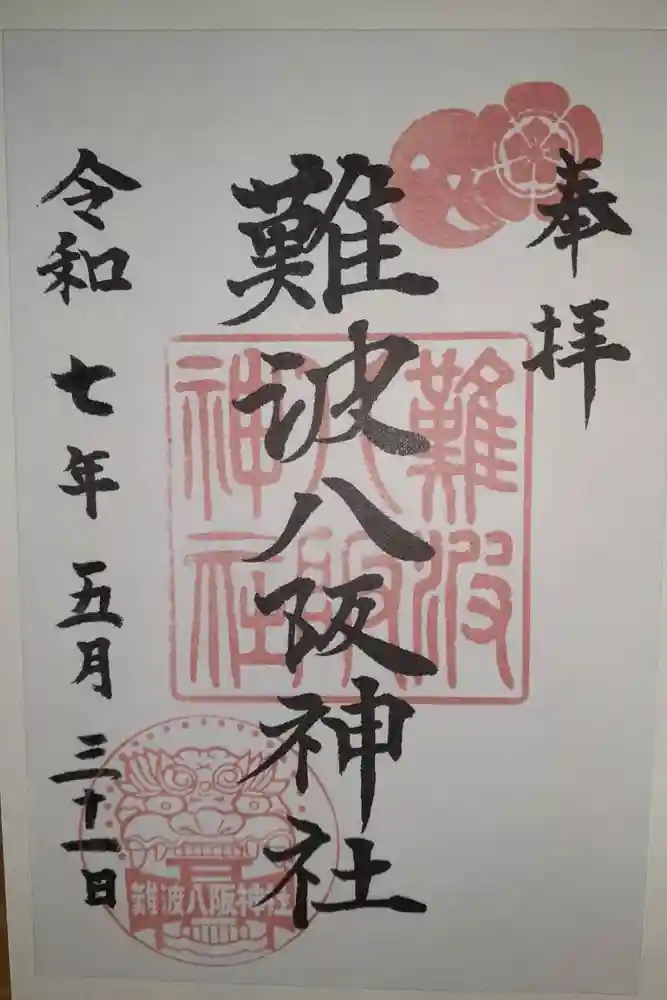 奉拝
難波八阪神社
令和七年五月三十一日
難波
八阪
神社
難波八阪神社